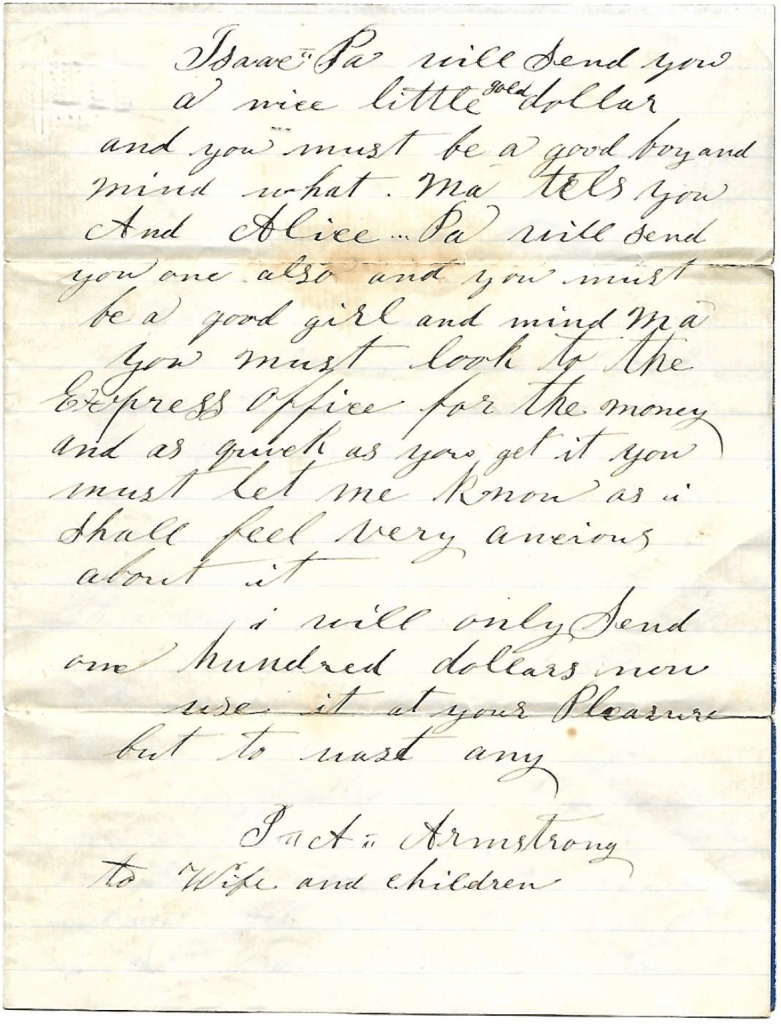 Isaac " Pa will send you
a nice little gold dollar
and you must be a good boy and
mind what . Ma tels you
And Alice " Pa will send
you one also and you must
be a good girl and mind Ma
you must look to the
Express office for the money
and as quick as you get it you
must let me know as i
shall feel very ancious
about it
i will only Send
one hundred dollars now
use it at your Pleasure
but to wast any
A " Armstrong
to Wife and children